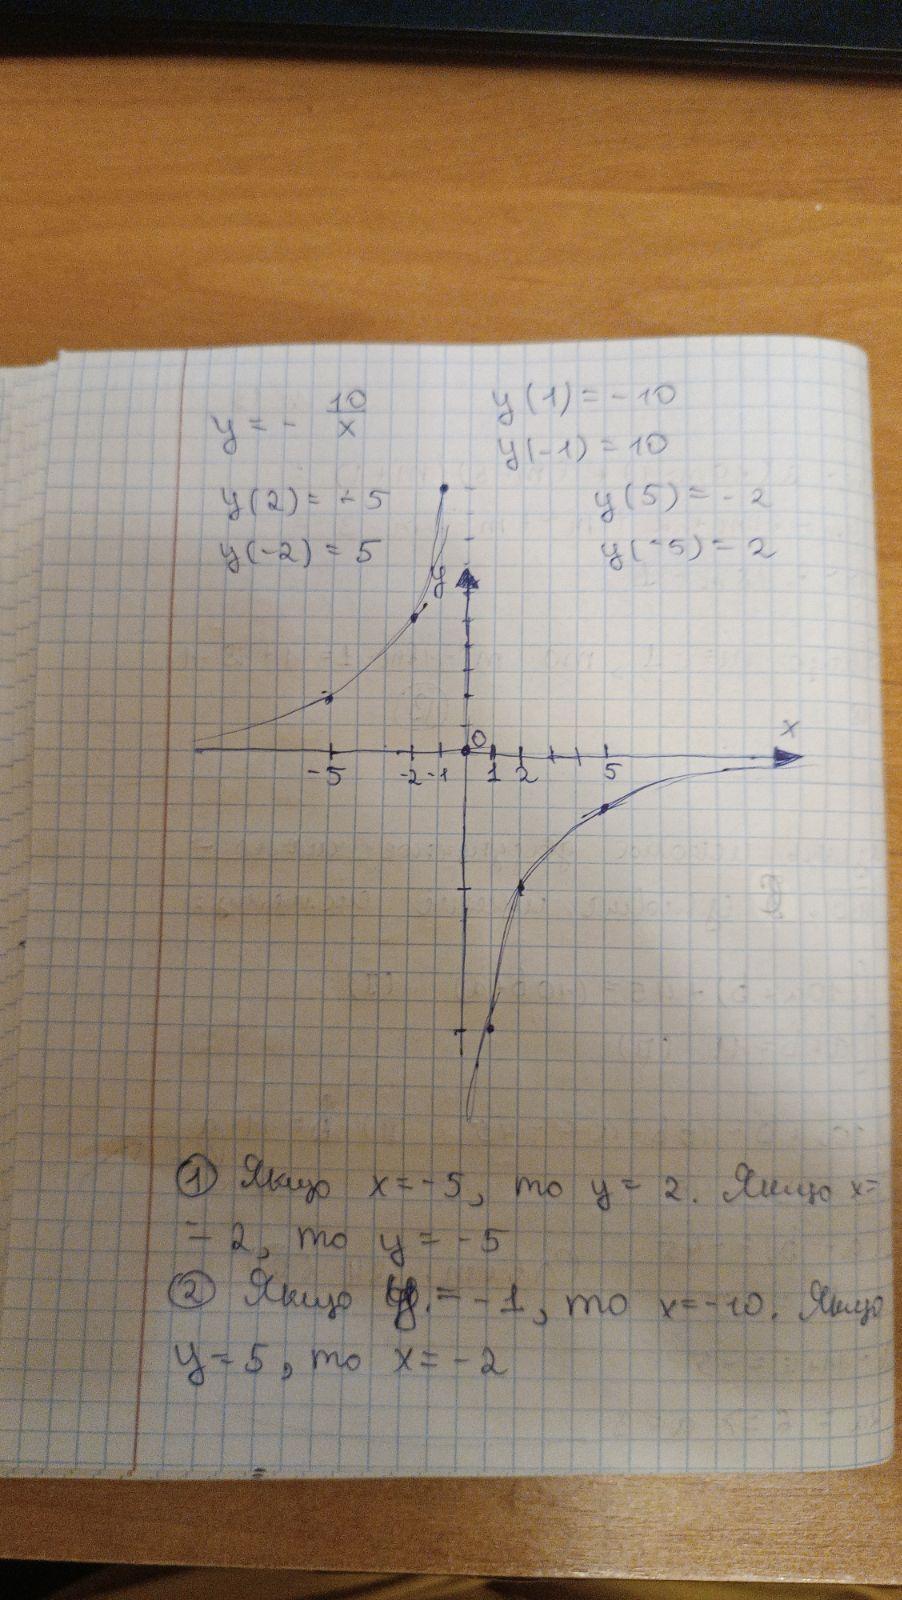 y = - 10/x
y(1) = -10
y(-1) = 10
y(2) = -5
y(5) = -2
y(-2) = 5
y(-5) = 2
y
0
x
-5 -2 -1 1 2 5
① Якщо x = -5, то y = 2. Якщо x =
= 2, то y = -5
② Якщо y = -1, то x = -10. Якщо
y = 5, то x = -2